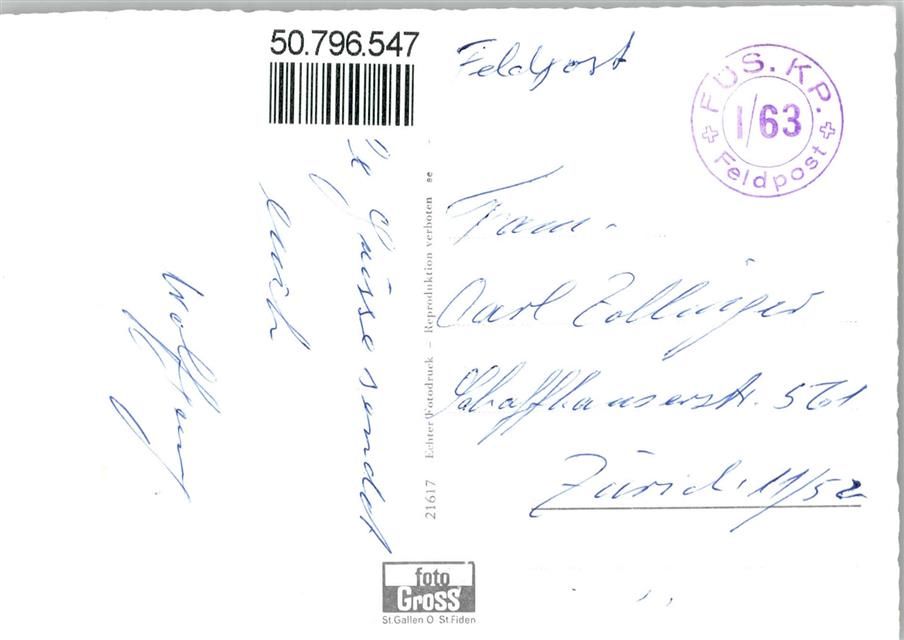 50.796.547
Feldpost
FÜS. KP.
I/63
Feldpost
Grüsse sendet
euch
Wolfgang
Fam.
Carl Zollinger
Schaffhauserstr. 561
Zürich 11/52
21617 Echter Fotodruck – Reproduktion verboten
foto
Gross
St.Gallen O St.Fiden